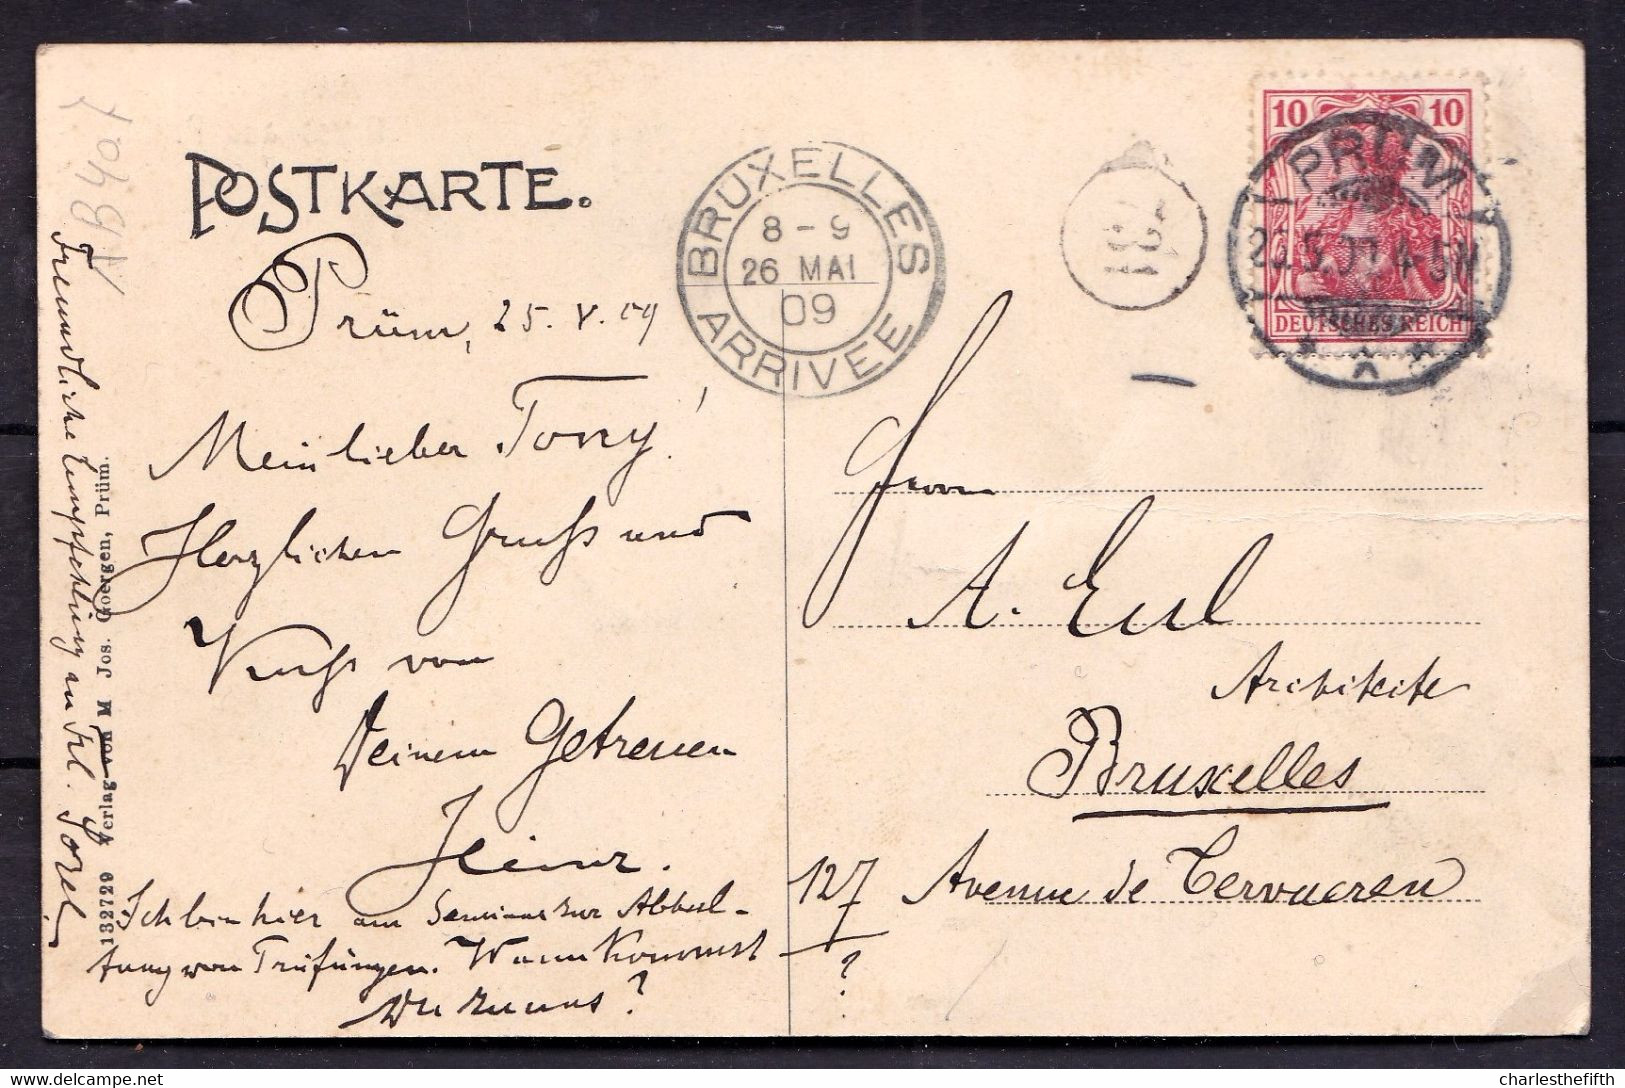 POSTKARTE.
Prüm, 25. V. 09
Mein lieber Tony!
Herzlichen Gruß und
Kuß von
Deinem Getreuen
Heinz.
Ich bin hier am Seminar zur Abhal-
tung von Prüfungen. Wann kommst
Du zu uns?
Freundliche Empfehlung an Frl.
132729 Verlag von M Jos. Goergen, Prüm.
BRUXELLES
8 - 9
26 MAI
09
ARRIVEE
10 10
DEUTSCHES REICH
PRÜM
Herrn
A. Eul
Architekte
Bruxelles
127 Avenue de Tervueren
?
charlesthefifth